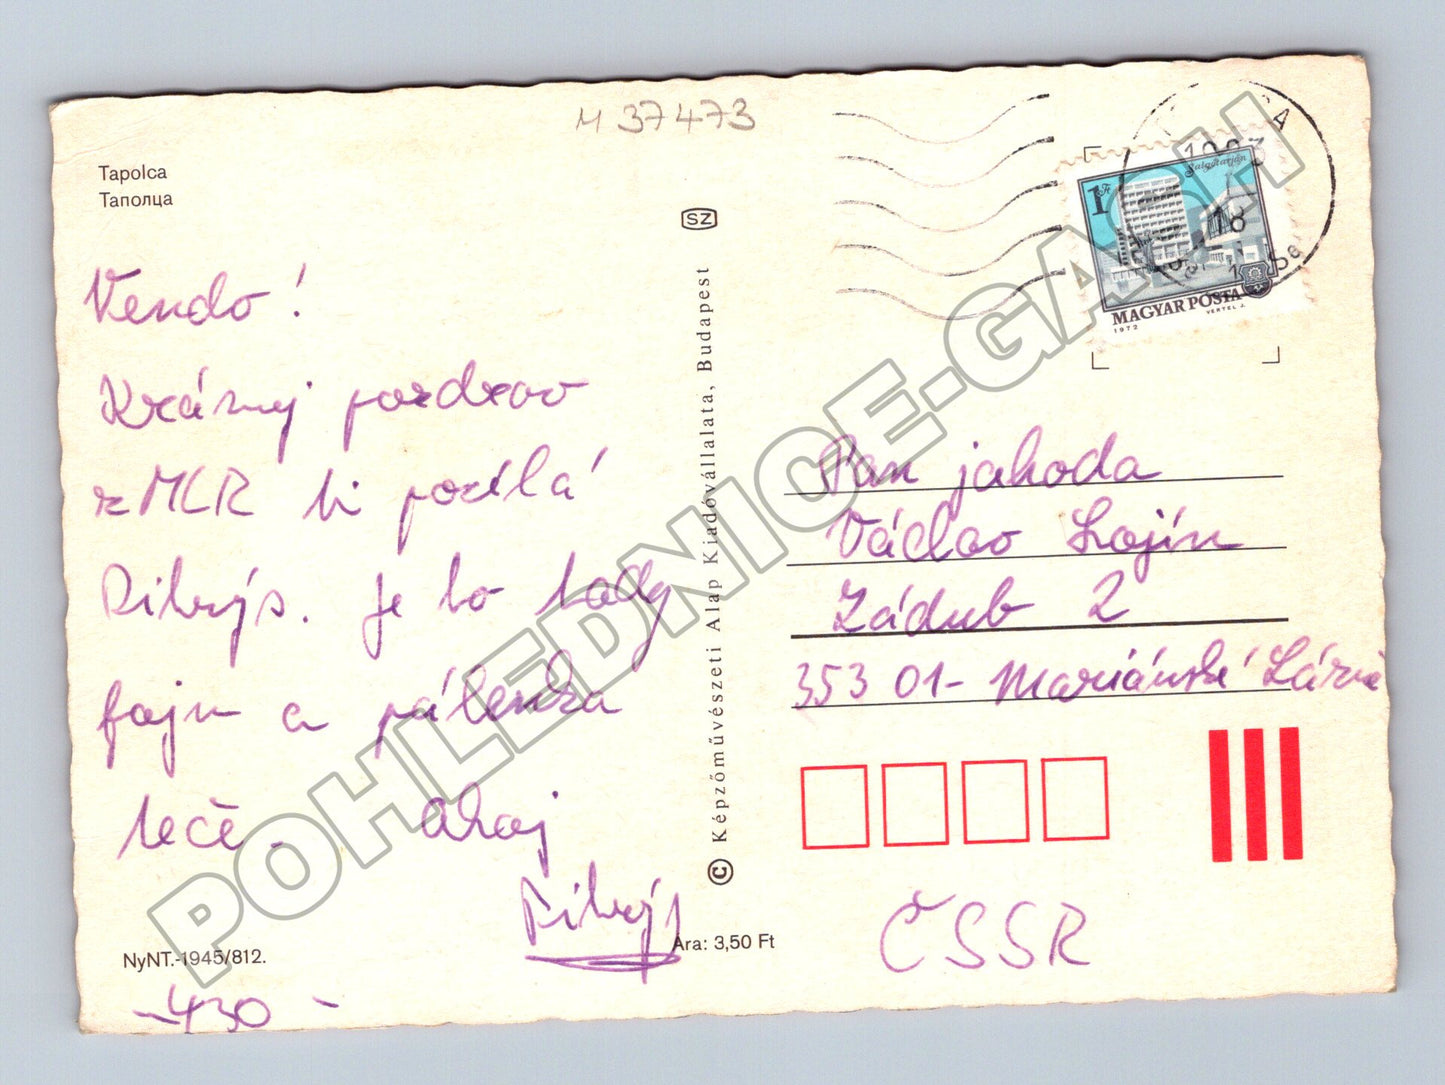 M 37473
Tapolca
Таполца
SZ
Vendo!
Krásnej pozdrav
z MLR ti posílá
Ribrýs. Je to tady
fajn a pálenka
teče. Ahoj
Ribrýs
NyNT.-1945/812.
Ára: 3,50 Ft
-430-
© Képzőművészeti Alap Kiadóvállalata, Budapest
1983
18
1 Ft
Salgótarján
MAGYAR POSTA
1972
VERTEL J.
Pan jahoda
Václav Lojín
Zádub 2
353 01 - Mariánské Lázně
ČSSR
POHLEDNICE-GASH